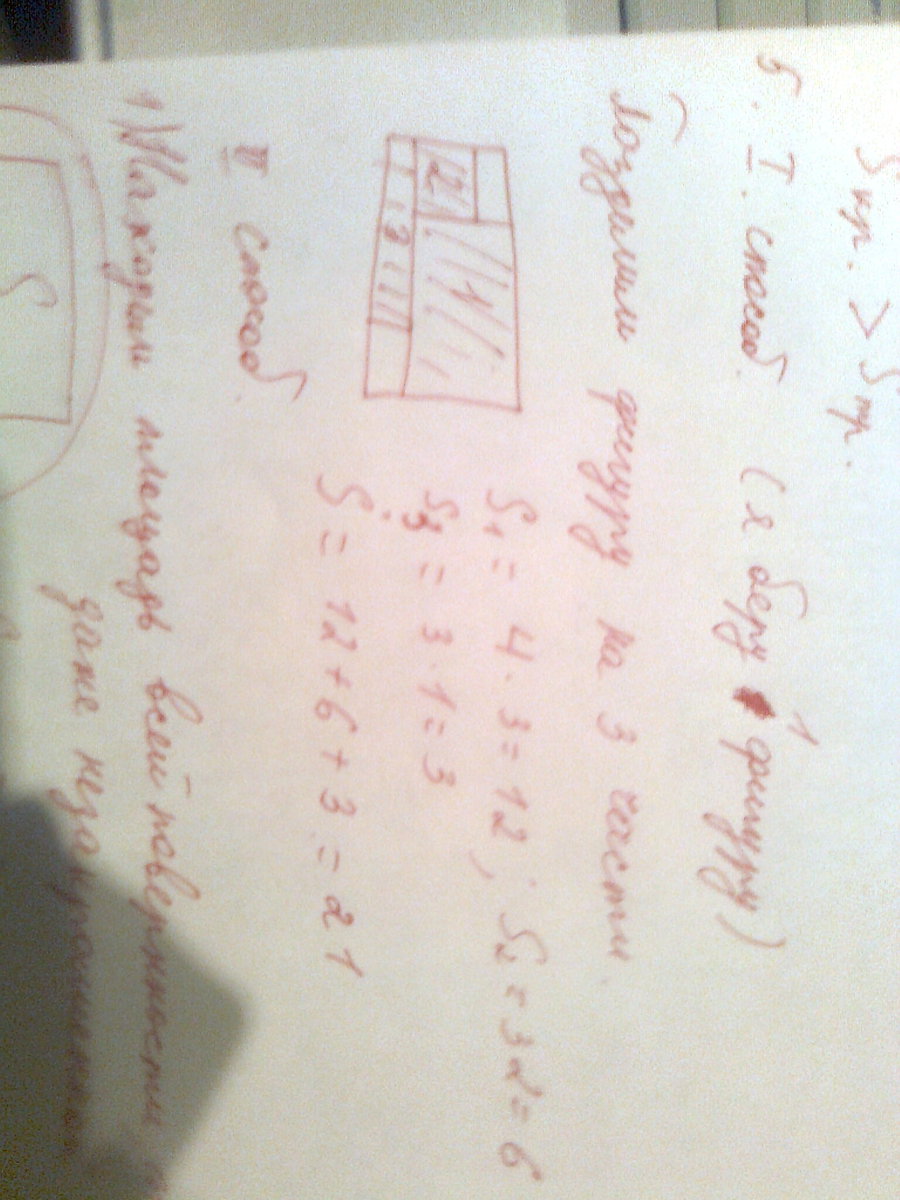 Sкр. > Sпр.
5. I. способ. (я беру 1 фигуру)
Разделим фигуру на 3 части.
2 1
3
S₁ = 4 · 3 = 12; S₂ = 3 2 = 6
S₃ = 3 · 1 = 3
S = 12 + 6 + 3 = 21
II способ.
1) Находим площадь всей поверхности
даже
S